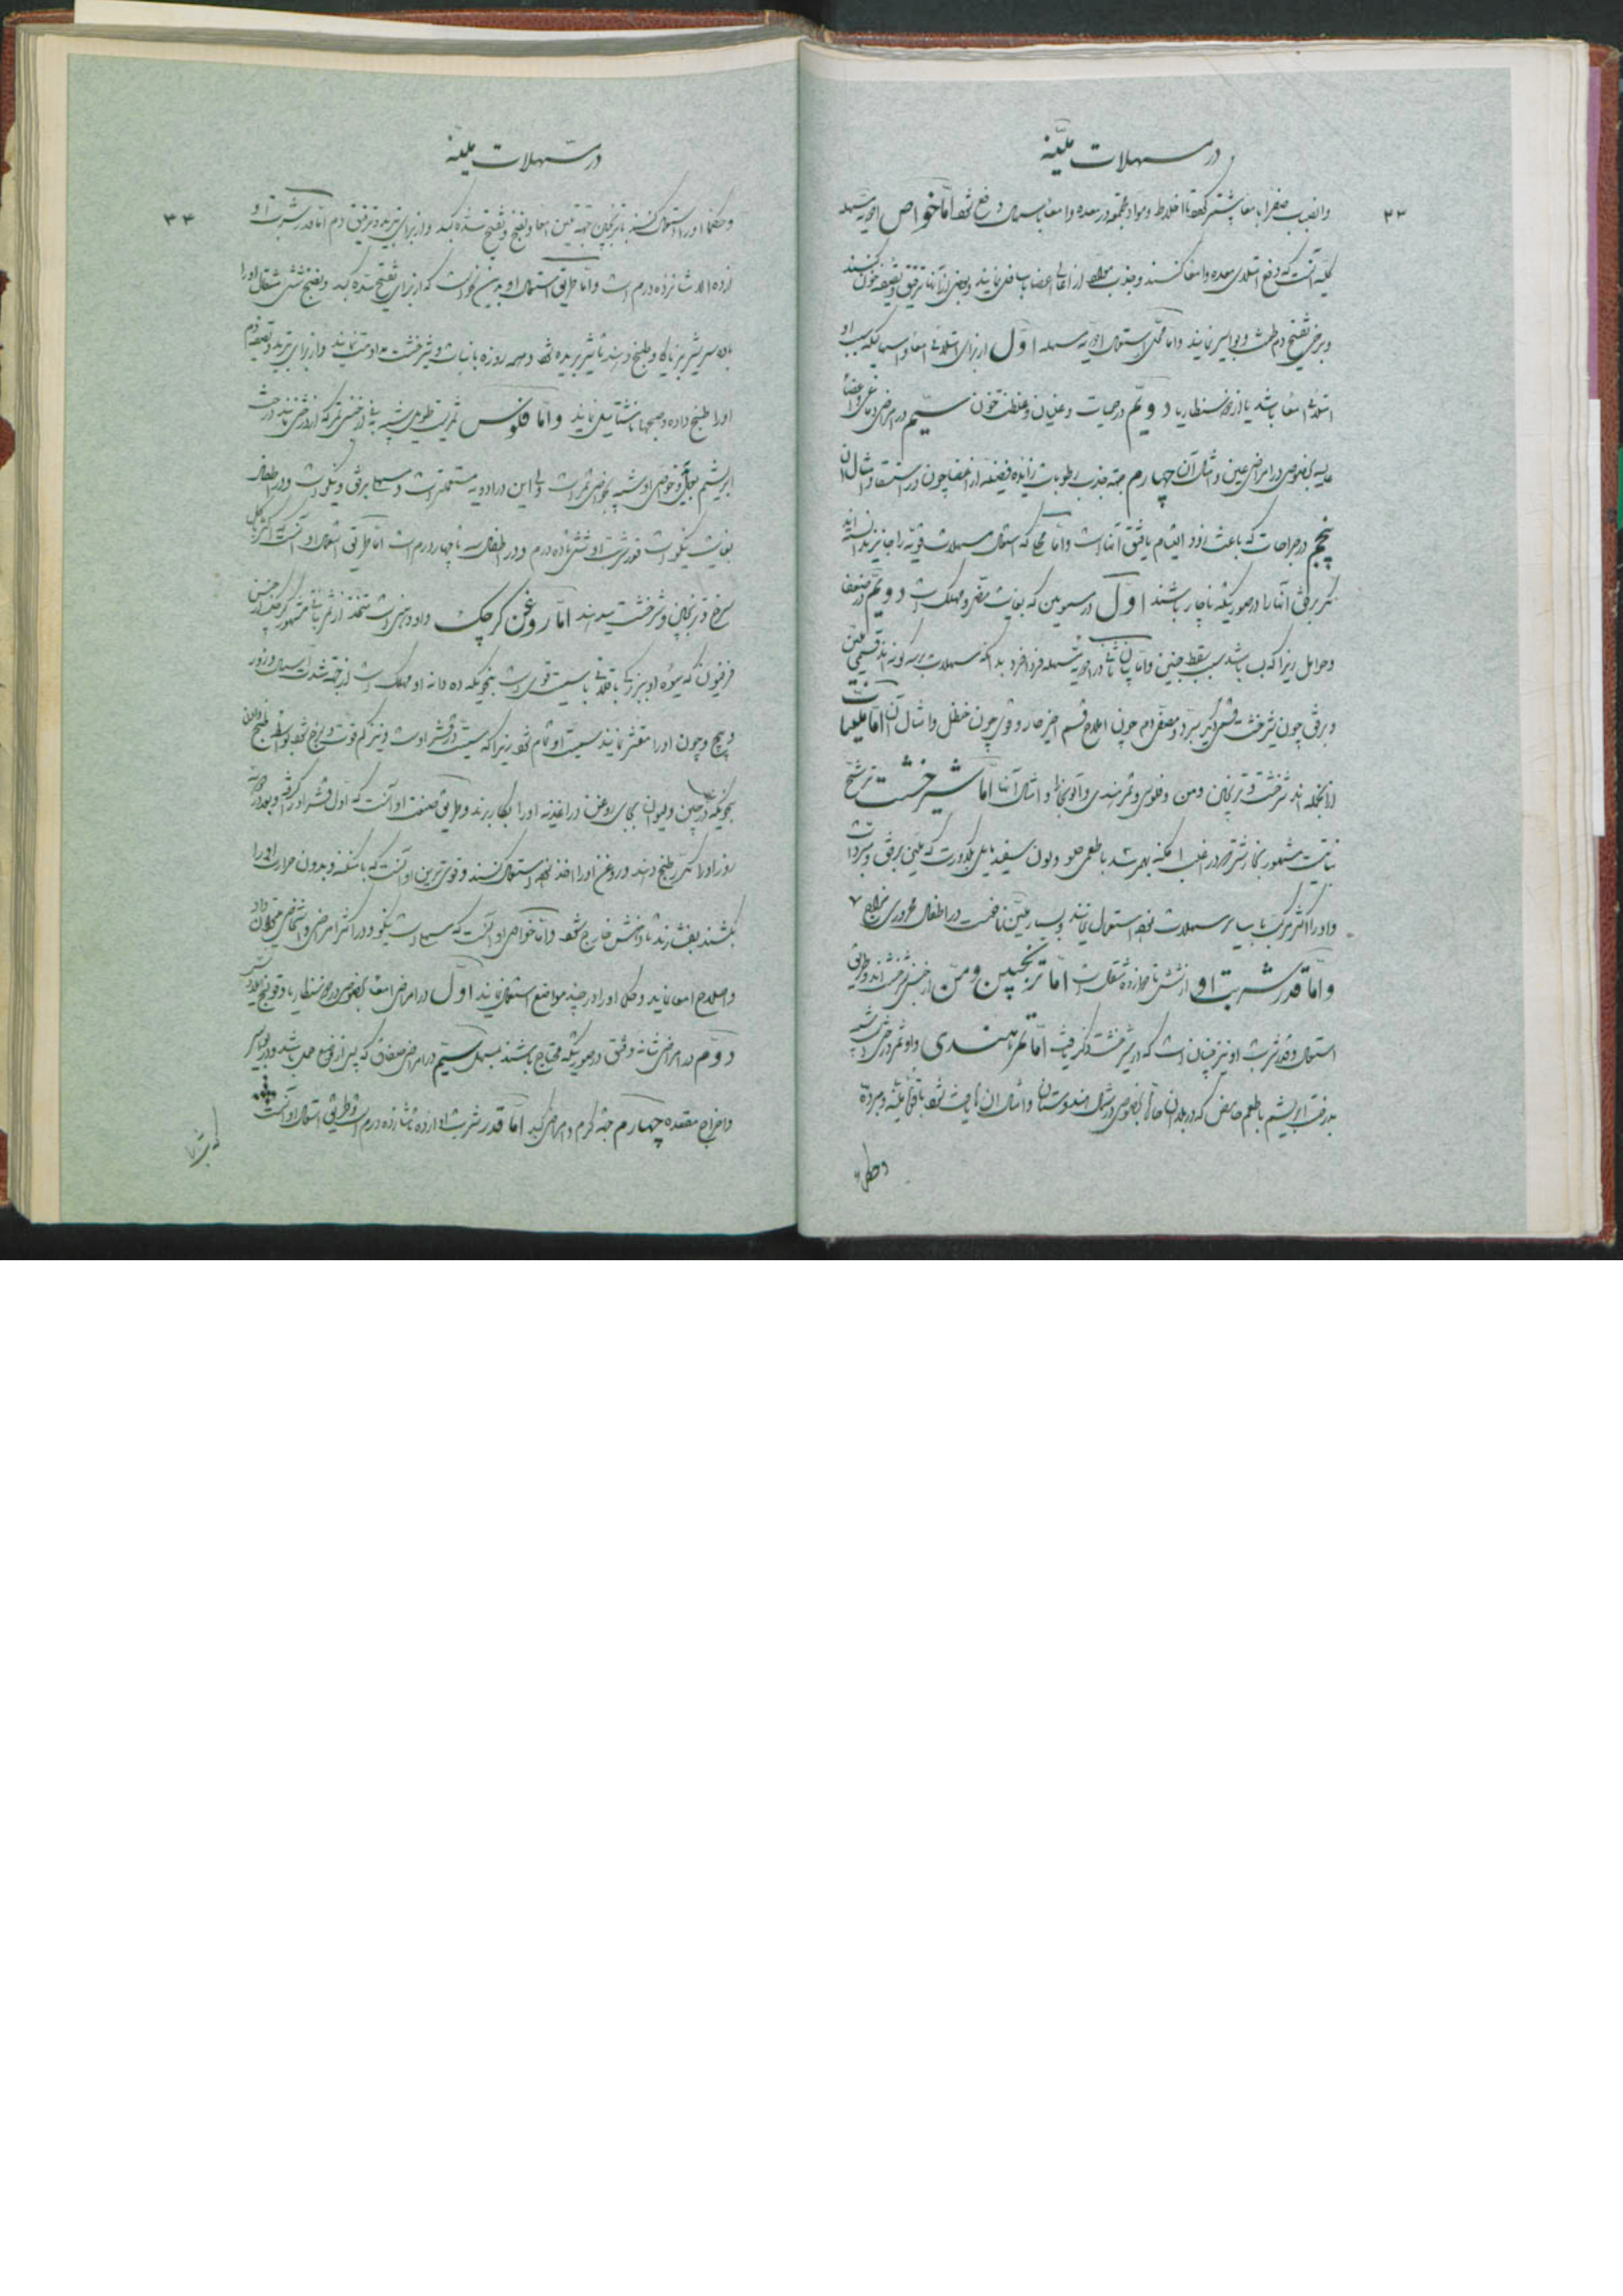 در مسهلات ملیّنه
۲۲
وانصباب صفرا بامعا پیشتر گفته تا اخلاط ومواد مجتمعه در معده وامعا باسهال دفع شود امّا خواص ادویه مسهله
کلیّه آنست که دفع امتلای معده وامعا کنند وجذب مواد از اعالی اعضا باسافل نمایند وبعضی از آنها ترقیق وتصفیه خون کنند
وبرخی تفتیح دم طمث وبواسیر نمایند وامّا محل استعمال ادویه مسهله اوّل از برای امتلای امعا واسهالیکه سبب او
امتلای امعا باشد یا از نوع ذوسنطاریا دویّم در حمیات وغلیان وغلظت خون سیّم در امراض دماغی واعضا
عالیه بخصوص در امراض عین وامثال آن چهارم جهة جذب رطوبات زایده فضلیه از اعضا چون در استسقا وامثال ان
پنجم در جراحات که باعث زود التیام یافتن آنهاست وامّا محلی که استعمال مسهلات قویّه را جایز ندانسته اند
مگر برفق آنها را در صورتیکه ناچار باشند اوّل در مسمومین که بغایت مضر ومهلک است دویّم در ضعفا
وحوامل زیرا که بسا باشد سبب سقط جنین وامّا بیان ثانی در ادویه مسهله فردا فرد بدانکه مسهلات بر سه گونه اند قسمی ملین
وبرفق چون شیرخشت وقسمی دیگر مبرّد ومصفی دم چون املاح وقسم اخیر حار وقوی چون حنظل وامثال آن امّا ملینات
از انجمله اند شیرخشت وترنجبین ومن وفلوس وتمر هندی وآلوبخارا وامثال آنها امّا شیرخشت ترشح
نباتیست مشهور بخارشتر در اغلب امکنه بهم رسد با طعمی حلو ولون سفید مایل بکدورت که ملین برفق ومبرد است
واورا اکثر مرکب با سایر مسهلات نموده استعمال نمایند وبسیار ملیّن نافعست در اطفال محروری مزاج
وامّا قدر شربت او از شش تا دوازده مثقال است امّا ترنجبین ومنّ از جنس شیرخشت اند وطریق
استعمال وقدر شربت او نیز چنان است که در شیرخشت ذکر یافت امّا تمر هندی واو ثمر درختی است شبیه
بدرخت ابریشم با طعم حامض که در بلدان حاره بخصوص در شمال هندوستان وامثال ان یافت شود با قوّة ملینه ومبرده
وحکما
در مسهلات ملیّنه
۲۳
وحکما اورا استعمال کنند با ترنجبین جهة تلیین امعا وتفتیح سده کبد واز برای تبرید وترقیق دم امّا قدر شربت او
از ده الی شانزده درم است وامّا طریق استعمال او بدین نحو است که از برای تفتیح سده کبد وتفتیح شش مثقال اورا
با ده سیر شیر بز طبخ دهند تا شیر بریده شود وهمه روزه با نبات وشیرخشت مداومت نمایند واز برای تبرید وتصفیه دم
اورا طبخ داده وصبحها ناشتا میل نمایند وامّا فلوس ثمریست طویل شبیه
ابریشم وخواص او شبیه بخواص تمر است ولی این در ادویه مستعملتر است ومسهلی برفق ونیکو است ودر اطفال
بغایت نیکو است قدر شربت او شش تا ده درم ودر اطفال سه تا چهار درم است امّا طریق استعمال او آنست که اکثر با گل
سرخ وترنجبین وشیرخشت میدهند امّا روغن کرچک واو دهنی است متخذ از ثمر نباتی مشهور بکرچک از جنس
فرفیون که میوه او بقلائی با سمیّت قوی است بنحویکه ده دانه او مهلک است از جهة شدت اسهال وزور
وپیچ وچون اورا مقشر نمایند سمیّت او تمام شود زیرا که سمیّت در قشر اوست
بنحویکه در چین بجای روغن در اغذیه اورا بکار برند وطریق صنعت او آنست که اول قشر اورا گرفته وبعد
روز اورا طبخ دهند وروغن اورا اخذ نموده استعمال کنند وقوی ترین او آنست که باشکنجه وبدون حرارت اورا
بکشند بفشارند تا دهنش خارج شود وامّا خواص او آنست که مسهلیست نیکو ودر اکثر امراض واشخاص میتوان داد
واصلاح امعا نماید وحکما اورا در چند مواضع استعمال نمایند اوّل در امراض امعا بخصوص در ذوسنطاریا وقولنج
دوّم در امراض مثانه وفتق در صورتیکه محتاج باشند بمسهل سیّم در امراض ضعفائی که پس از وضع حمل باشد ودر بواسیر
واخراج مقعده چهارم جهة کرم وامراض کبد امّا قدر شربت او از ده تا شانزده درم است وطریق استعمال او آنست